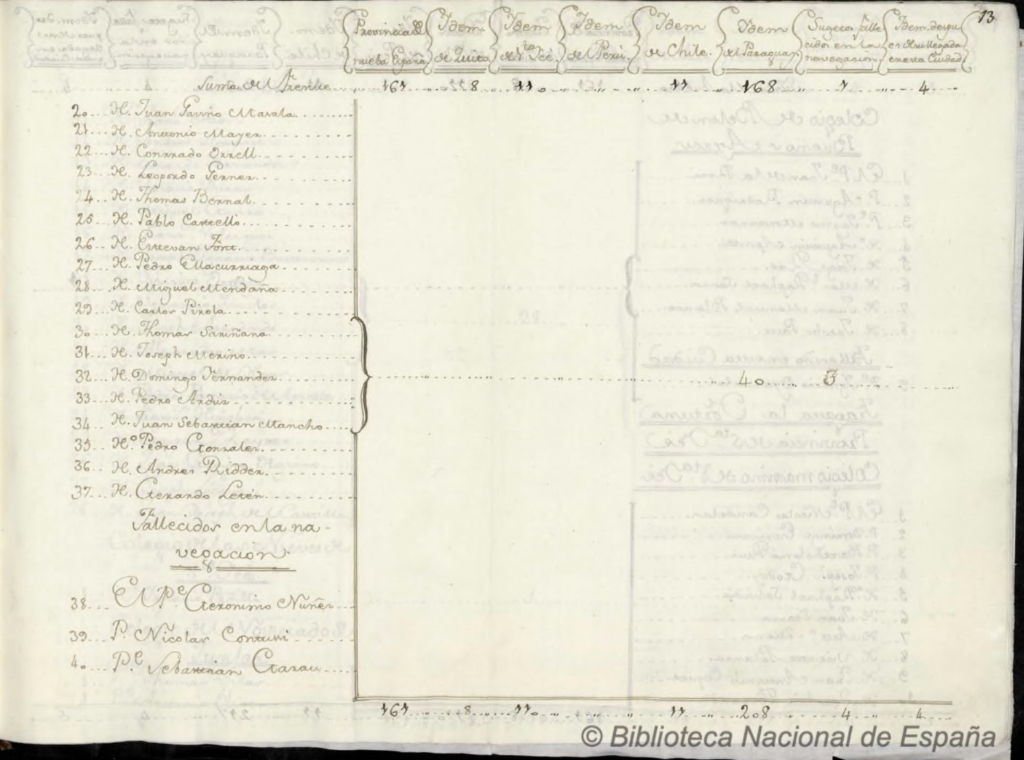 13
Provincia de nueba España
Ydem de Quito
Ydem de Sta. Fée
Ydem de Peru
Ydem de Chile
Ydem del Paraguay
Sugetos fallecidos en la navegacion
Ydem despues de su llegada en esta Ciudad
Suma del frente 161 8 110 " 11 168 1 4
20.. H. Juan
21... H. Antonio Mayer
22... H. Conrrado
23... H. Leopordo
24.. H. Thomas Bernal
25.. H. Pablo
26... H. Estevan Font
27... H. Pedro Ellacurriaga
28... H. Miguel Mendaña
29... H. Carlos Pirola
30... H. Thomas Sariñana
31... H. Joseph Merino
32... H. Domingo Fernandez 40 3
33... H. Pedro Arduz
34... H. Juan Sebastian Mancho
35... Ho. Pedro Gonzalez
36... H. Andres Ridder
37... H. Gerardo Letén
Fallecidos en la na-
vegacion
38... El Pe. Geronimo Nuñez
39... P. Nicolas Conturi
40... Pe. Sebastian Garau
161 8 110 " 11 208 4 4
© Biblioteca Nacional de España